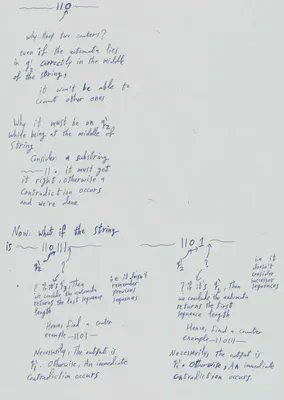 110
why keep two counters?
even if the automata lies
in q¹₂ correctly in the middle
of the string,
it won't be able to
count other ones
Why it must be on q¹₂
while being at the middle of
String
Consider a substring
11. it must get
it right, otherwise a
contradiction occurs
and we're done
Now: what if the string
is 110111
q¹₂ ?
? if it's q¹₃, Then
we conclude the automata
returns the last sequence
length
i.e it doesn't
remember
previous
sequences
Hence, find a counter
example —1101—
Necessarily, The output is
q¹₁. Otherwise, An immediate
contradiction occurs
1101
q¹₂ ?
? if it's q¹₂, Then
we conclude the automata
returns the first
sequence length
i.e it
doesn't
consider
successor
sequences
Hence, find a counter
example —110111—
Necessarily, The output is
q¹₁. Otherwise, An immediate
contradiction occurs.